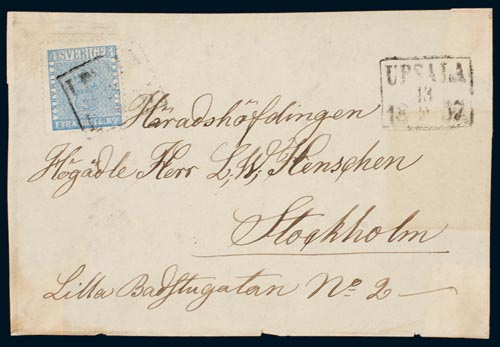 4 SVERIGE 4
FYRA
UPSALA
13
18 57
Häradshöfdingen
Högädle Herr L, W, Henschen
Stockholm
Lilla Badstugatan No 2